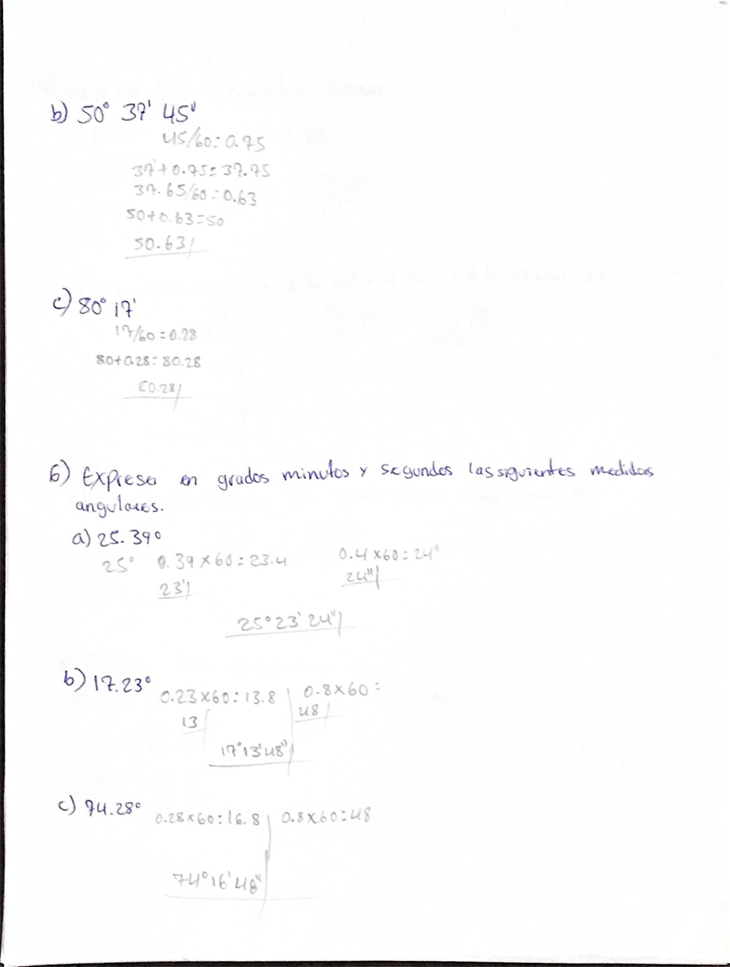 b) 50° 37' 45"
45/60 = 0.75
37' + 0.75 = 37.75
37.65/60 = 0.63
50 + 0.63 = 50
50.63
c) 80° 17'
17/60 = 0.28
80 + 0.28 = 80.28
80.28
6) Expresa en grados minutos y segundos las siguientes medidas
angulares.
a) 25.39°
25° 0.39 x 60 = 23.4 0.4 x 60 = 24"
23' 24"
25° 23' 24"
b) 17.23° 0.23 x 60 = 13.8 0.8 x 60 =
13 48
17° 13' 48"
c) 74.28° 0.28 x 60 = 16.8 0.8 x 60 = 48
74° 16' 48"